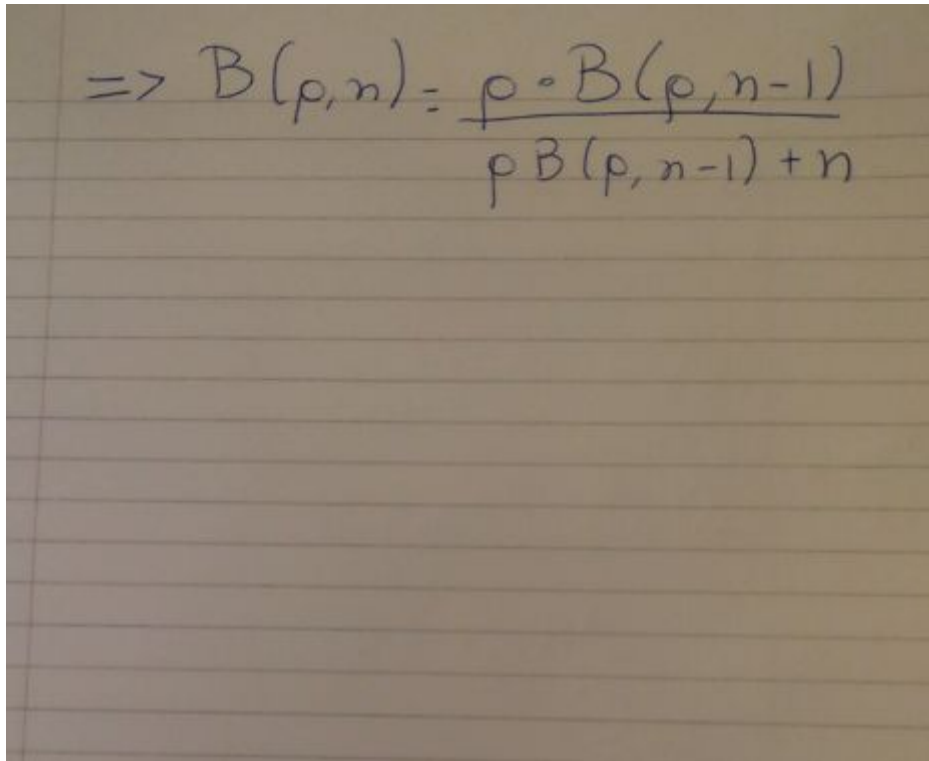 => B(ρ,n) = ρ·B(ρ,n-1)
ρB(ρ,n-1)+n